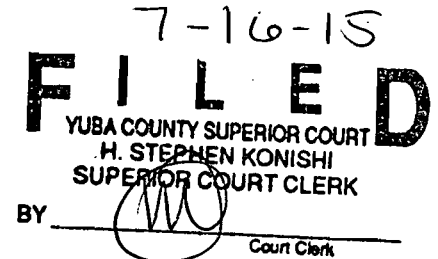 7-16-15
FILED
YUBA COUNTY SUPERIOR COURT
H. STEPHEN KONISHI
SUPERIOR COURT CLERK
BY
Court Clerk